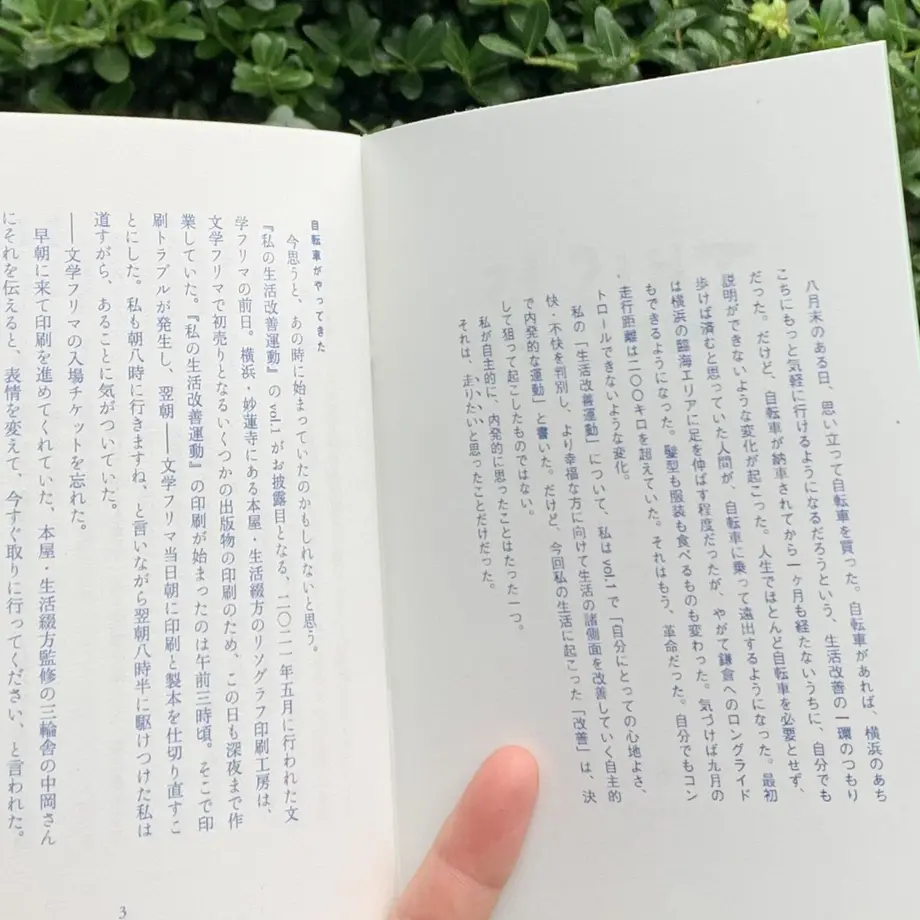 八月末のある日、思い立って自転車を買った。自転車があれば、横浜のあち
こちにもっと気軽に行けるようになるだろうという、生活改善の一環のつもり
だった。だけど、自転車が納車されてから一ヶ月も経たないうちに、自分でも
説明ができないような変化が起こった。人生でほとんど自転車を必要とせず、
歩けば済むと思っていた人間が、自転車に乗って遠出するようになった。最初
は横浜の臨海エリアに足を伸ばす程度だったが、やがて鎌倉へのロングライド
もできるようになった。髪型も服装も食べるものも変わった。気づけば九月の
走行距離は二〇〇キロを超えていた。それはもう、革命だった。自分でもコン
トロールできないような変化。
私の「生活改善運動」について、私はvol.1で「自分にとっての心地よさ、
快・不快を判別し、より幸福な方に向けて生活の諸側面を改善していく自主的
で内発的な運動」と書いた。だけど、今回私の生活に起こった「改善」は、決
して狙って起こしたものではない。
私が自主的に、内発的に思ったことはたった一つ。
それは、走りたいと思ったことだけだった。
自転車がやってきた
今思うと、あの時に始まっていたのかもしれないと思う。
『私の生活改善運動』のvol.1がお披露目となる、二〇二一年五月に行われた文
学フリマの前日。横浜・妙蓮寺にある本屋・生活綴方のリソグラフ印刷工房は、
文学フリマで初売りとなるいくつかの出版物の印刷のため、この日も深夜まで作
業していた。『私の生活改善運動』の印刷が始まったのは午前三時頃。そこで印
刷トラブルが発生し、翌朝――文学フリマ当日朝に印刷と製本を仕切り直すこ
とにした。私も朝八時に行きますね、と言いながら翌朝八時半に駆けつけた私は
道すがら、あることに気がついていた。
――文学フリマの入場チケットを忘れた。
早朝に来て印刷を進めてくれていた、本屋・生活綴方監修の三輪舎の中岡さん
にそれを伝えると、表情を変えて、今すぐ取りに行ってください、と言われた。
3